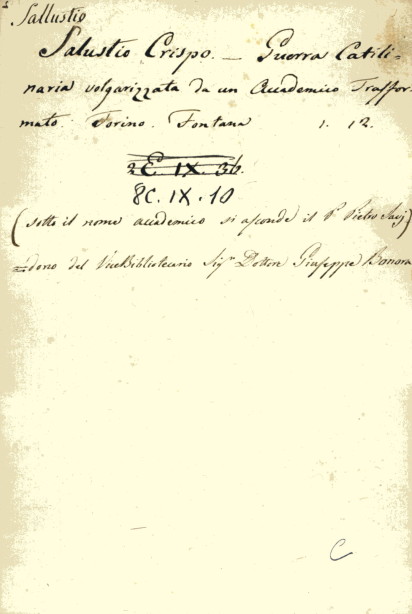 Sallustio
Salustio Crispo. — Guerra Catili-
naria volgarizzata da un Accademico Trasfor-
mato. Torino. Fontana 1. 12.
2 E. IX. 36.
8C. IX. 10
(sotto il nome accademico si asconde il P. Pietro)
dono del ViceBibliotecario Sigr Dottor Giuseppe Bonora
C